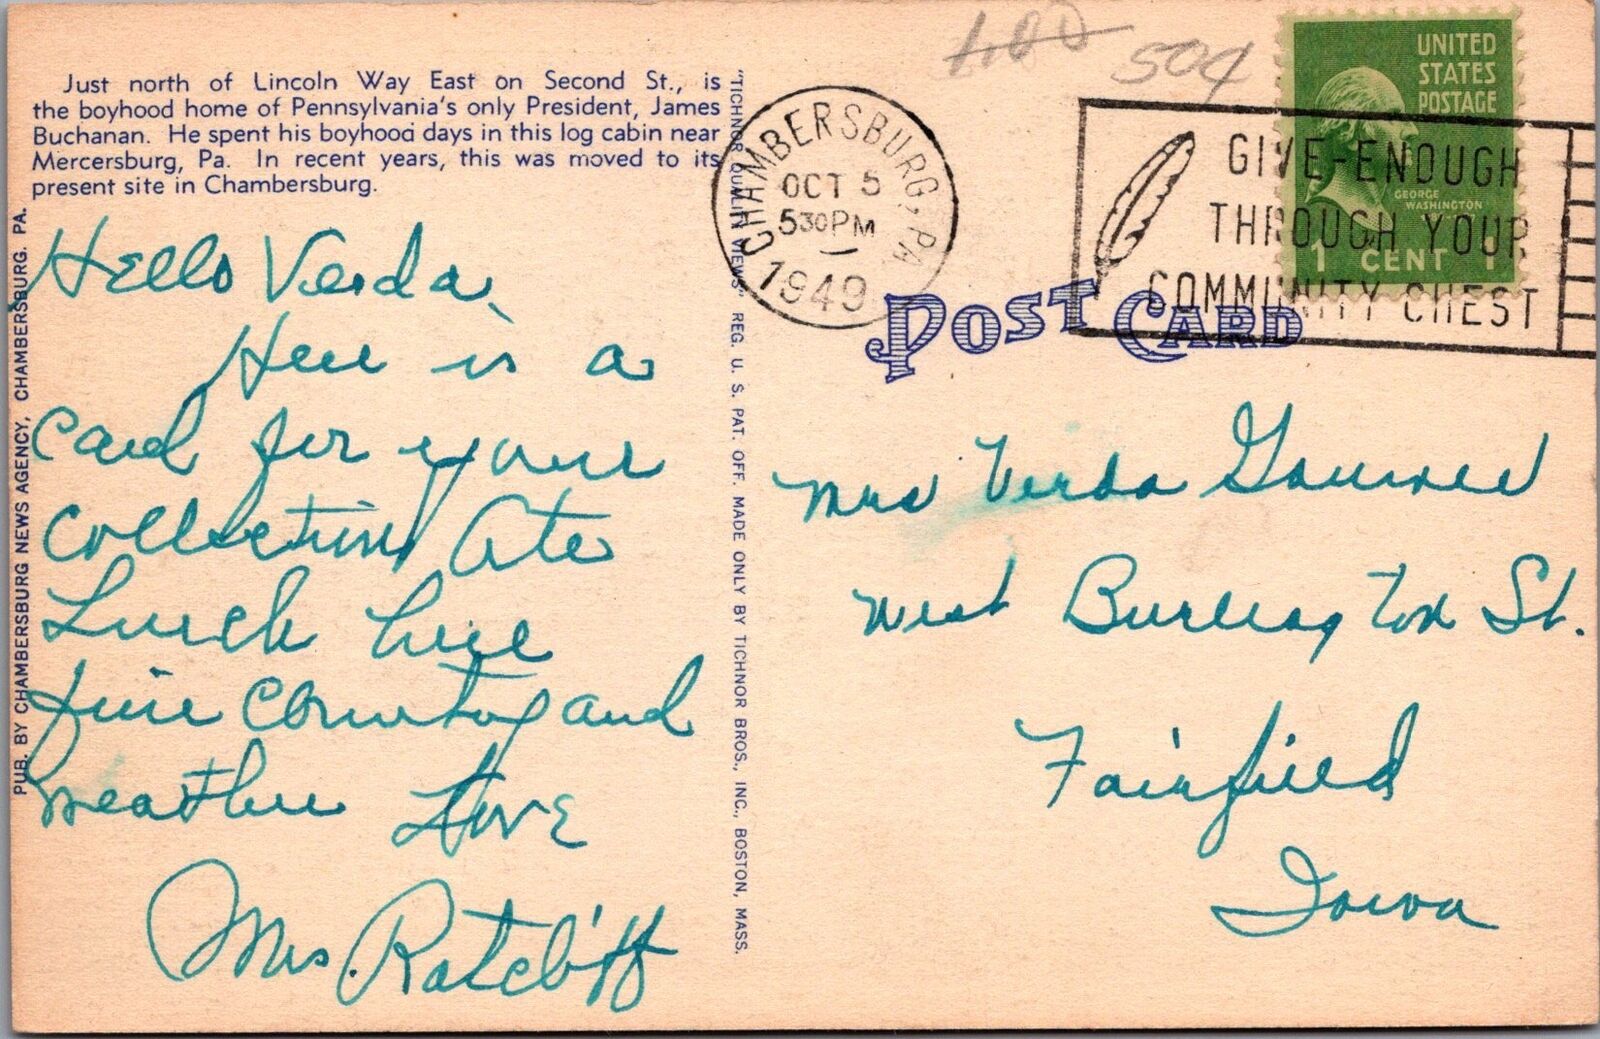 Just north of Lincoln Way East on Second St., is
the boyhood home of Pennsylvania's only President, James
Buchanan. He spent his boyhood days in this log cabin near
Mercersburg, Pa. In recent years, this was moved to its
present site in Chambersburg.
PUB. BY CHAMBERSBURG NEWS AGENCY, CHAMBERSBURG. PA.
Hello Verda,
Here is a
card for your
collection Ate
Lunch here
fine country and
weather Love
Mrs. Ratcliff
"TICHNOR QUALITY VIEWS," REG. U. S. PAT. OFF. MADE ONLY BY TICHNOR BROS., INC., BOSTON, MASS.
50¢
CHAMBERSBURG, PA.
OCT 5
530 PM
1949
GIVE-ENOUGH
THROUGH YOUR
COMMUNITY CHEST
UNITED
STATES
POSTAGE
GEORGE
WASHINGTON
1 CENT 1
POST CARD
Mrs Verda
West Burlington St.
Fairfield
Iowa